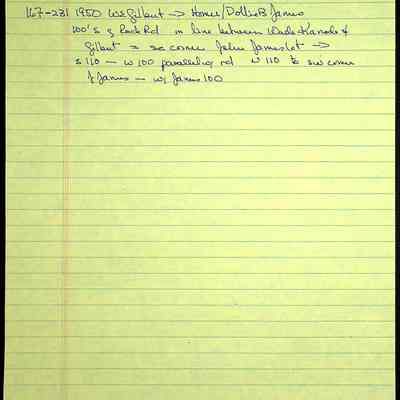 167-231 1950 WS Gilbert → Homer/Dollie B James
100's of Rock Rd in line between Wade Kanode &
Gilbert = se corner John James lot →
s 110 — w 100 parallel rd N 110 to sw corner
of James — w/ James 100